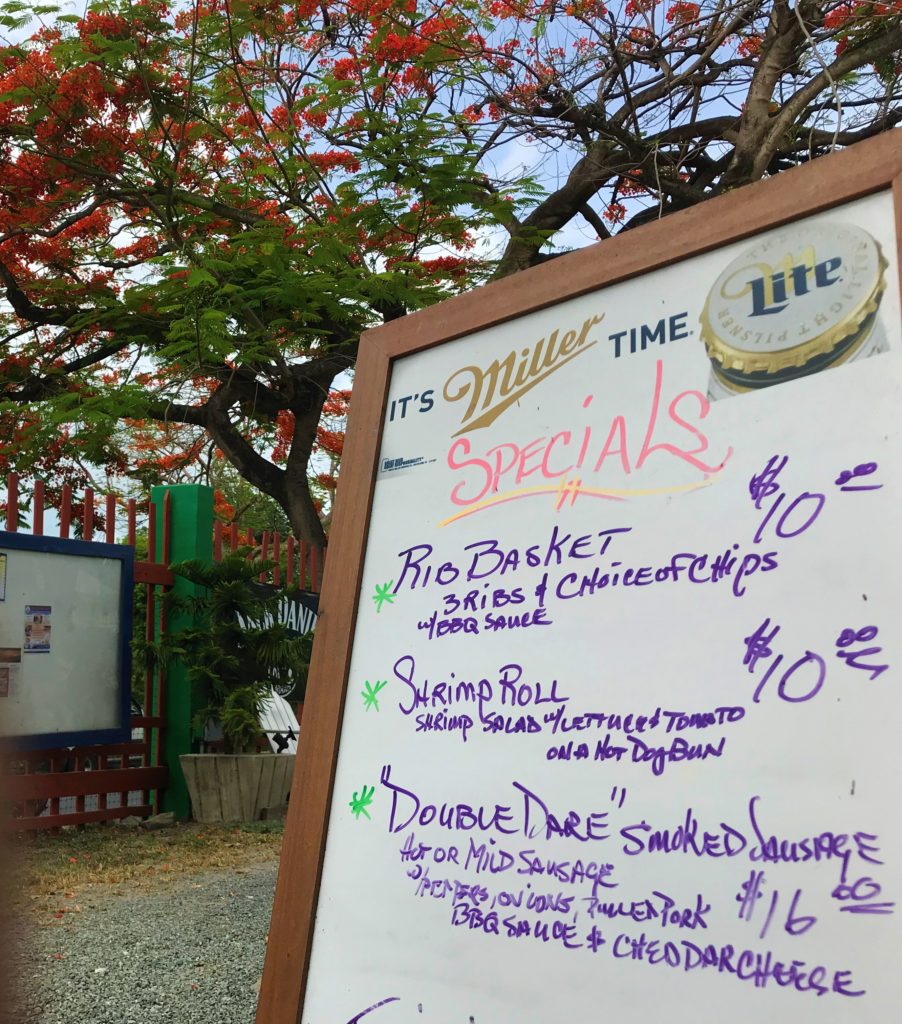 IT'S Miller TIME
THE ORIGINAL LIGHT PILSNER
Lite
SPECIALS
* RIB BASKET $10.00
3 RIBS & CHOICE OF CHIPS
w/BBQ SAUCE
* SHRIMP ROLL $10.00
SHRIMP SALAD w/LETTUCE & TOMATO
ON A HOT DOG BUN
* "DOUBLE DARE" SMOKED SAUSAGE
HOT OR MILD SAUSAGE $16.00
w/PEPPERS, ONIONS, PULLED PORK
BBQ SAUCE & CHEDDAR CHEESE